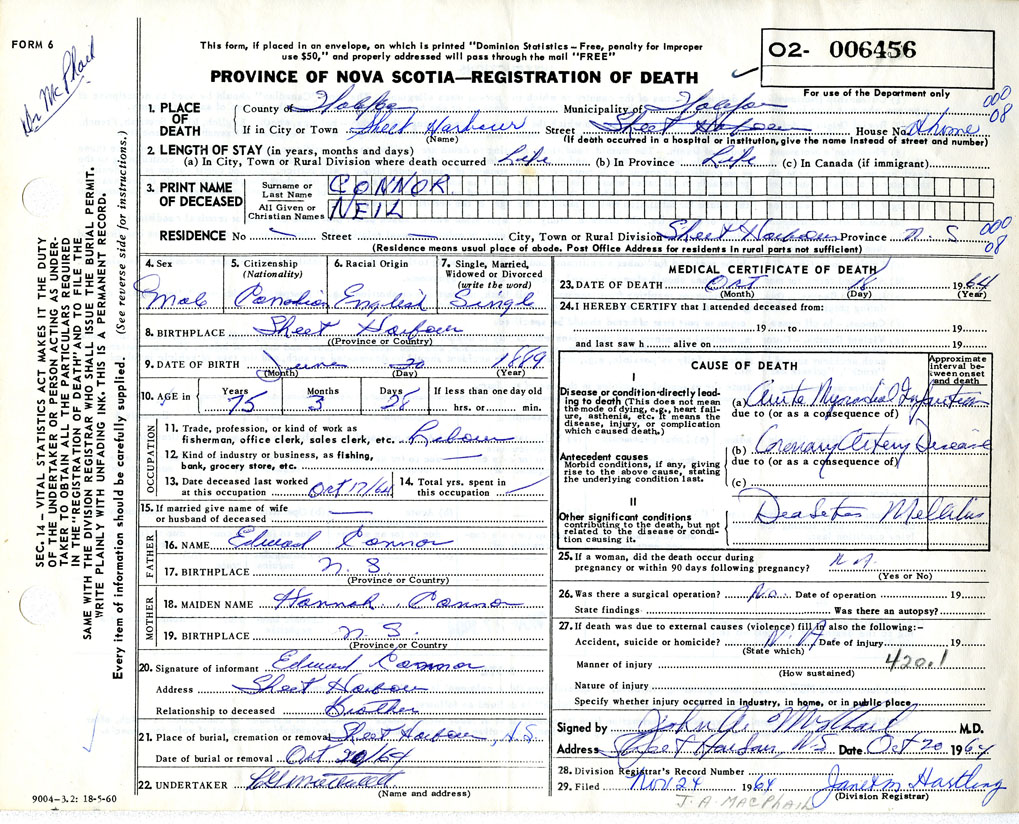 FORM 6
Dr McPhail
This form, if placed in an envelope, on which is printed "Dominion Statistics – Free, penalty for improper
use $50," and properly addressed will pass through the mail "FREE"
PROVINCE OF NOVA SCOTIA—REGISTRATION OF DEATH
O2- 006456
For use of the Department only
000
08
1. PLACE OF DEATH
County of Halifax Municipality of Halifax
If in City or Town Sheet Harbour Street Sheet Harbour House No. at home
(Name) (If death occurred in a hospital or institution, give the name instead of street and number)
2. LENGTH OF STAY (in years, months and days)
(a) In City, Town or Rural Division where death occurred Life (b) In Province Life (c) In Canada (if immigrant)
3. PRINT NAME OF DECEASED
Surname or Last Name CONNOR
All Given or Christian Names NEIL
000
08
RESIDENCE No Street City, Town or Rural Division Sheet Harbour Province N. S
(Residence means usual place of abode. Post Office Address for residents in rural parts not sufficient)
4. Sex Male
5. Citizenship (Nationality) Canadian
6. Racial Origin English
7. Single, Married, Widowed or Divorced (write the word) Single
8. BIRTHPLACE Sheet Harbour
(Province or Country)
9. DATE OF BIRTH June 20 1889
(Month) (Day) (Year)
10. AGE in Years 75 Months 3 Days 28 If less than one day old hrs. or min.
OCCUPATION
11. Trade, profession, or kind of work as
fisherman, office clerk, sales clerk, etc. Labour
12. Kind of industry or business, as fishing,
bank, grocery store, etc.
13. Date deceased last worked at this occupation Oct 17/64
14. Total yrs. spent in this occupation
15. If married give name of wife
or husband of deceased
FATHER
16. NAME Edward Connor
17. BIRTHPLACE N. S
(Province or Country)
MOTHER
18. MAIDEN NAME Hannah Connor
19. BIRTHPLACE N. S.
(Province or Country)
20. Signature of informant Edward Connor
Address Sheet Harbour
Relationship to deceased Brother
21. Place of burial, cremation or removal Sheet Harbour, N.S.
Date of burial or removal Oct 20/64
22. UNDERTAKER
(Name and address)
MEDICAL CERTIFICATE OF DEATH
23. DATE OF DEATH Oct 18 1964
(Month) (Day) (Year)
24. I HEREBY CERTIFY that I attended deceased from:
19 to 19
and last saw h alive on 19
CAUSE OF DEATH
Approximate interval between onset and death
I
Disease or condition directly leading to death (This does not mean the mode of dying, e.g., heart failure, asthenia, etc. It means the disease, injury, or complication which caused death.)
(a) Acute Myocardial Infarction
due to (or as a consequence of)
(b) Coronary Artery Disease
due to (or as a consequence of)
(c)
Antecedent causes
Morbid conditions, if any, giving rise to the above cause, stating the underlying condition last.
II
Other significant conditions
contributing to the death, but not related to the disease or condition causing it.
Diabetes Mellitus
25. If a woman, did the death occur during
pregnancy or within 90 days following pregnancy?
(Yes or No)
26. Was there a surgical operation? No Date of operation 19
State findings Was there an autopsy?
27. If death was due to external causes (violence) fill in also the following:–
Accident, suicide or homicide? Date of injury 19
(State which)
420.1
Manner of injury
(How sustained)
Nature of injury
Specify whether injury occurred in industry, in home, or in public place
Signed by John A. M.D.
Address Sheet Harbour, N.S Date Oct 20 1964
28. Division Registrar's Record Number
29. Filed Nov. 24 1964 Janet M Hartling
(Division Registrar)
J. A. MACPHAIL
SEC. 14 – VITAL STATISTICS ACT MAKES IT THE DUTY
OF THE UNDERTAKER OR PERSON ACTING AS UNDER-
TAKER TO OBTAIN ALL THE PARTICULARS REQUIRED
IN THE "REGISTRATION OF DEATH" AND TO FILE THE
SAME WITH THE DIVISION REGISTRAR WHO SHALL ISSUE THE BURIAL PERMIT.
WRITE PLAINLY WITH UNFADING INK. THIS IS A PERMANENT RECORD.
Every item of information should be carefully supplied. (See reverse side for instructions.)
9004-3.2: 18-5-60